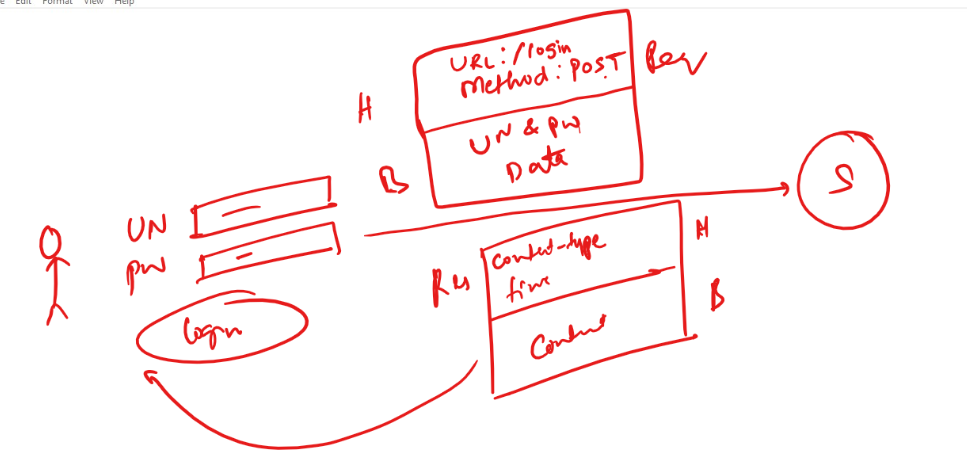 Edit Format View Help
URL: /login
Method: POST
Req
H
UN & PW
Data
B
S
UN
PW
Login
Res
Content-type
time
H
Content
B